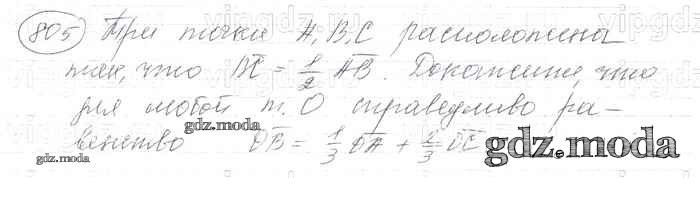 805 Три точки A, B, C расположена
так, что BC = 1/2 AB. Докажите, что
для любой т. O справедливо ра-
венство OB = 1/3 OA + 2/3 OC
gdz.moda
gdz.moda
gdz.moda